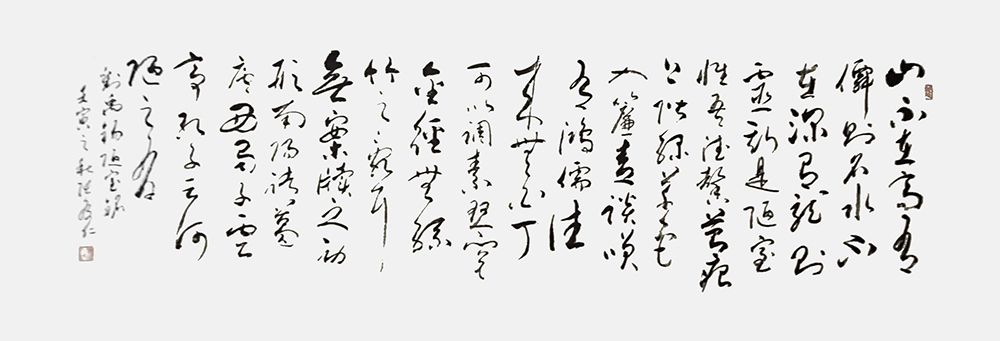 山不在高有
僊則名水不
在深有龍則
靈斯是陋室
惟吾德馨苔痕
上階綠草色
入簾青談笑
有鴻儒往
來無白丁
可以調素琴閱
金經無絲
竹之亂耳
無案牘之勞
形南陽諸葛
廬西蜀子雲
亭孔子云何
陋之有
劉禹錫陋室銘
壬寅之秋